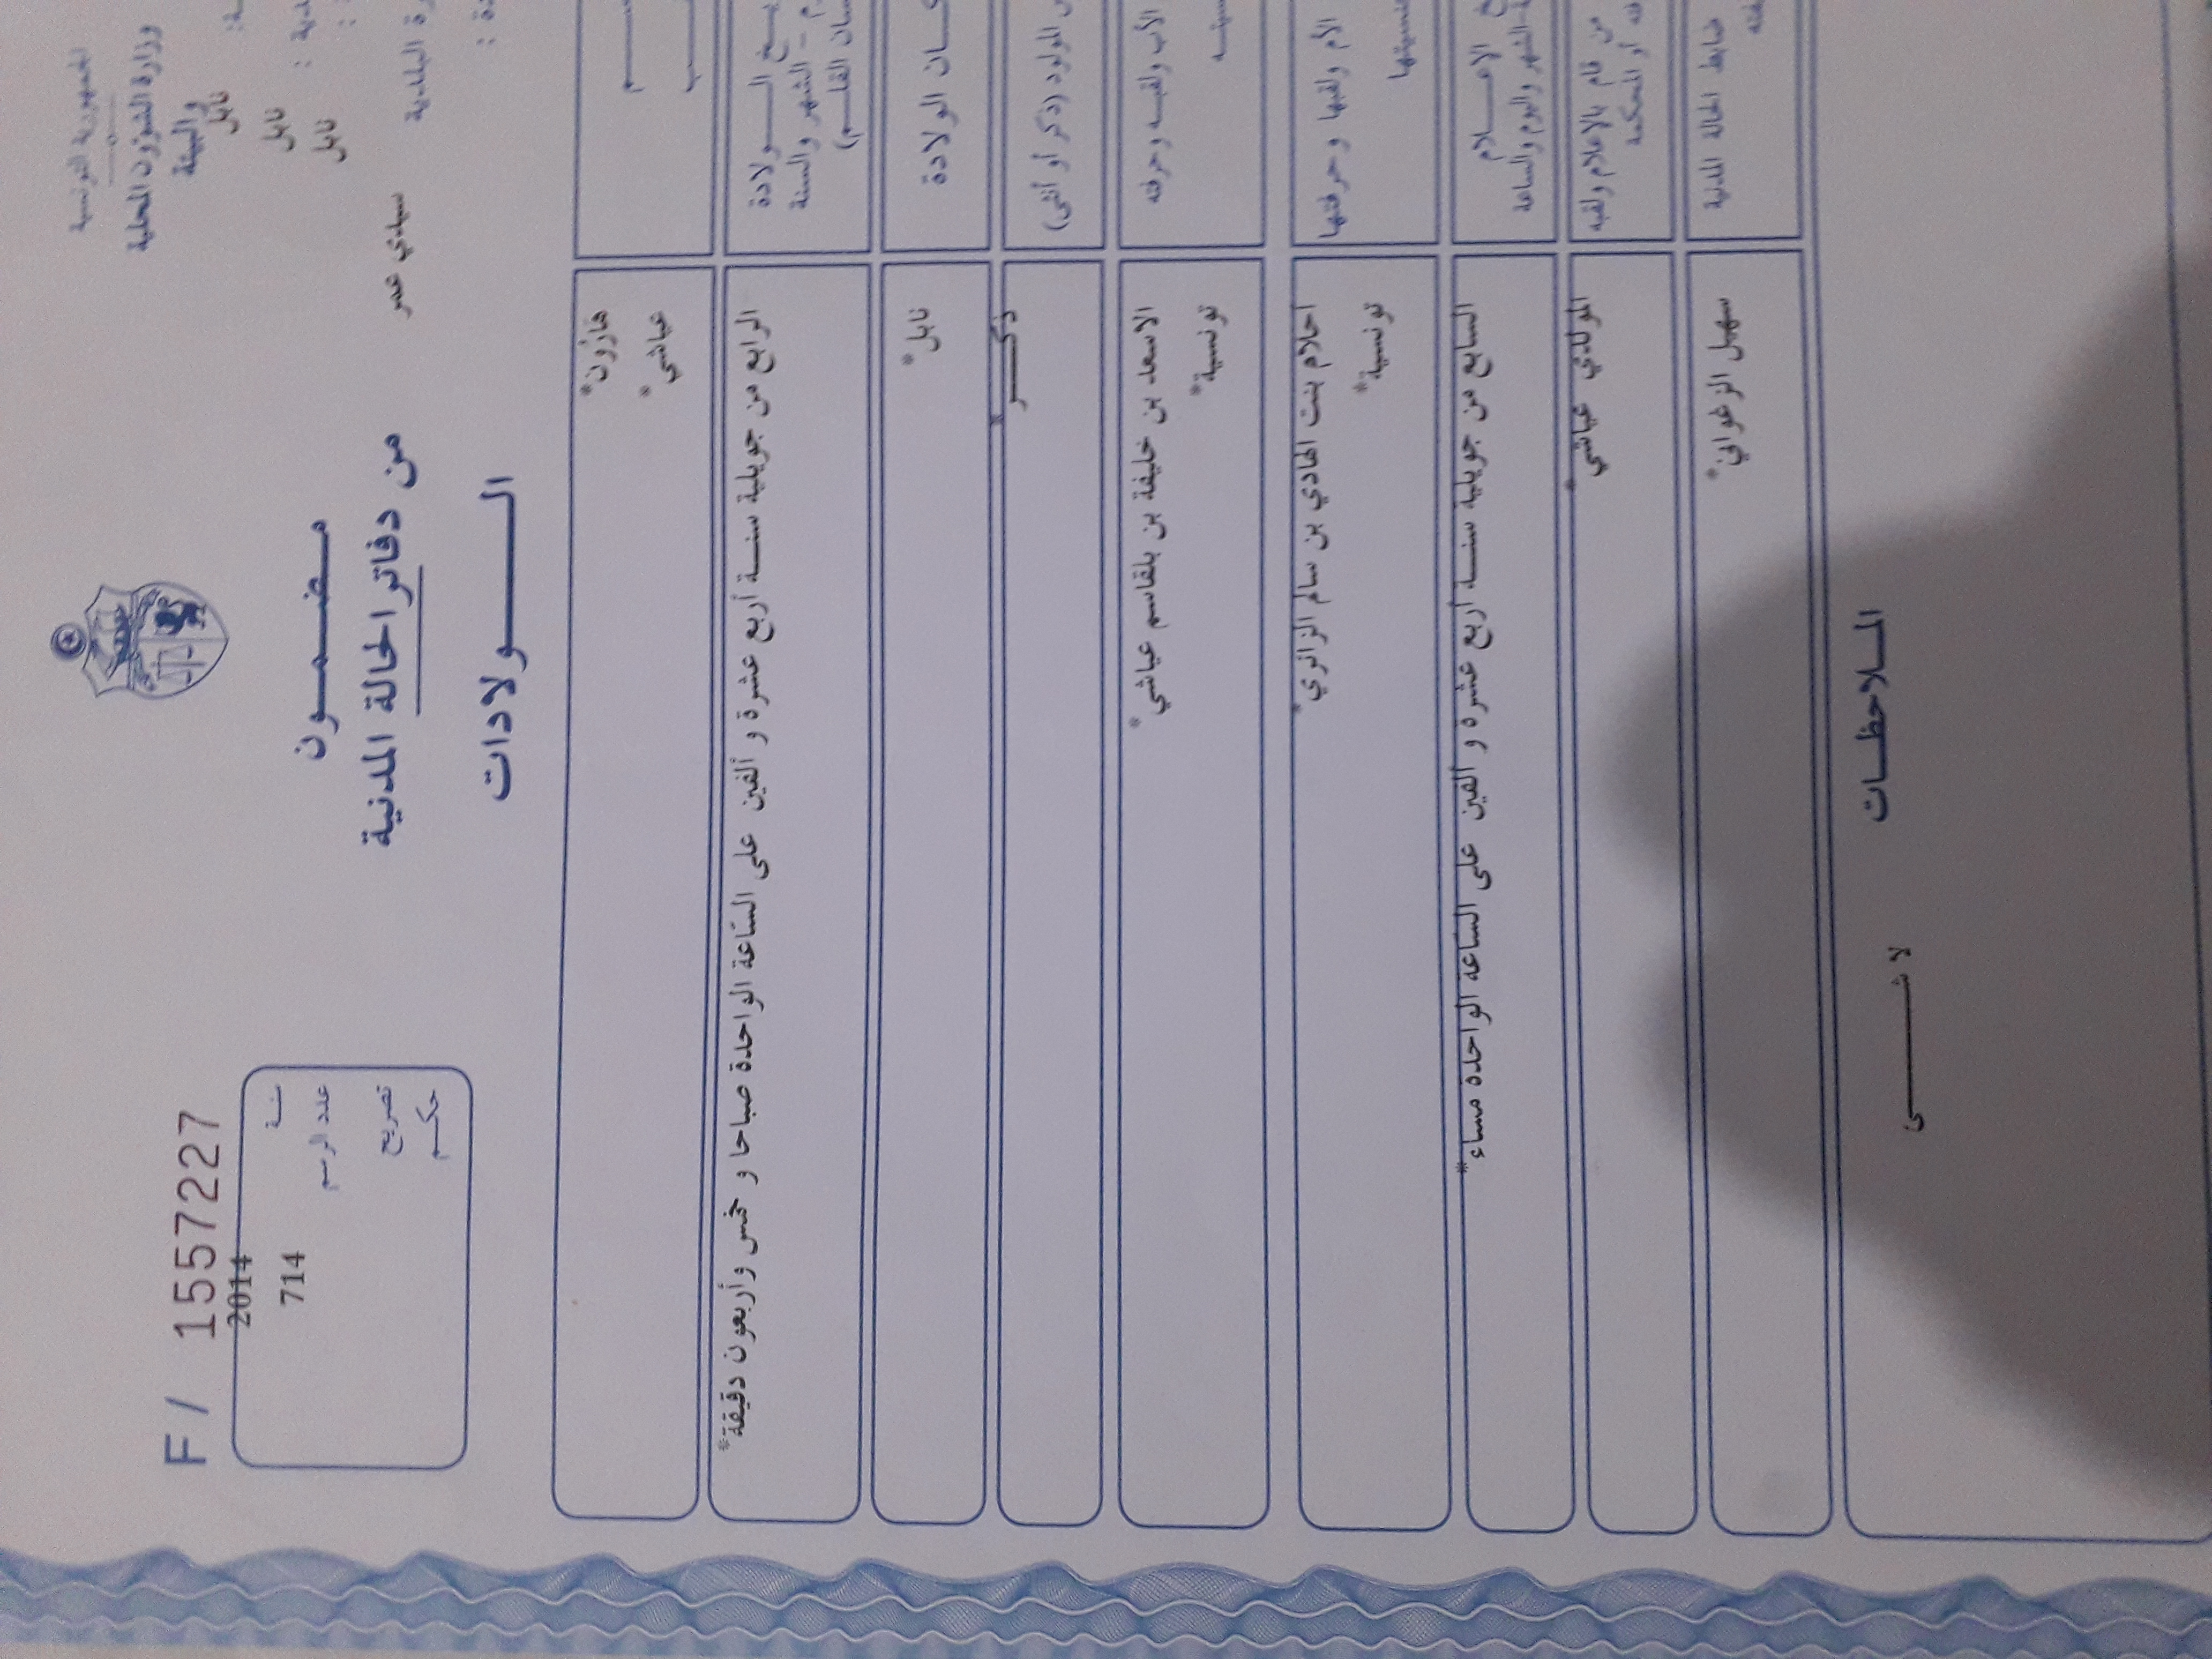 الجمهورية التونسية
وزارة الشؤون المحلية
والبيئة
نابل
نابل
نابل
سيدي عمر
F / 1557227
2014
سنة
714
عدد الرسم
تصريح
حكم
مضمون
من دفاتر الحالة المدنية
الولادات
هارون*
عياشي*
الولادة
الشهر والسنة
القلم)
الرابع من جويلية سنة أربع عشرة و ألفين على الساعة الواحدة صباحا و خمس وأربعون دقيقة*
الولادة
نابل*
المولود (ذكر أو أنثى)
ذكر*
الأب ولقبه وحرفته
الاسعد بن خليفة بن بلقاسم عياشي*
تونسية*
الأم ولقبها وحرفتها
جنسيتها
احلام بنت الهادي بن سالم الزائري*
تونسية*
الاعلام
الشهر واليوم والساعة
السابع من جويلية سنة أربع عشرة و ألفين على الساعة الواحدة مساء*
من قام بالاعلام ولقبه
أو المحكمة
عياشي*
ضابط الحالة المدنية
سهيل الزغواني*
الملاحظات
لا شى